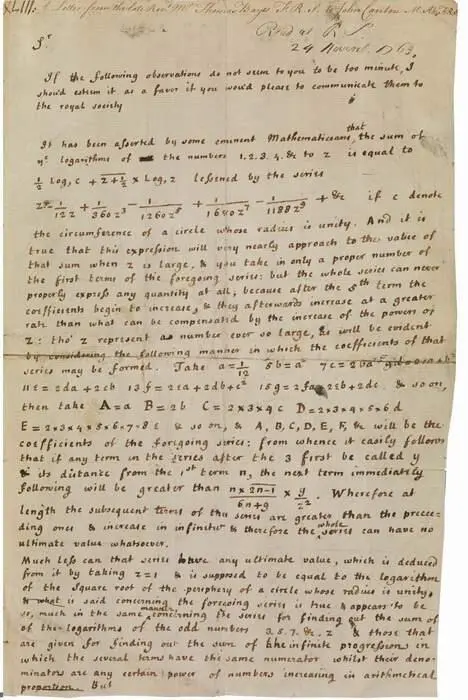 XLIII. A Letter from the late Revd. Mr. Thomas Bayes F. R. S. to John Canton M. A. & F. R. S.
Read at R. S.
24 Novemb. 1763.
Sr
If the following observations do not seem to you to be too minute, I
shoud esteem it as a favor if you woud please to communicate them to
the royal society
It has been asserted by some eminent Mathematicians that the sum of
ye logarithms of the numbers 1.2.3.4.&c to z is equal to
1/2 Log, c + z+1/2 × Log, z lessened by the series
z - 1/12z + 1/360z^3 - 1/1260z^5 + 1/1680z^7 - 1/1188z^9 + &c if c denote
the circumference of a circle whose radius is unity. And it is
true that this expression will very nearly approach to the value of
that sum when z is large, & you take in only a proper number of
the first terms of the foregoing series: but the whole series can never
properly express any quantity at all, because after the 5th term the
coefficients begin to increase, & they afterwards increase at a greater
rate than what can be compensated by the increase of the powers of
z: tho' z represent a number ever so large, as will be evident
by considering the following manner in which the coefficients of that
series may be formed. Take a = 1/12 5b = a^2 7c = 2ba
11e = 2da + 2cb 13f = 2ea + 2db + c^2 15g = 2fa + 2eb + 2dc & so on,
then take A = a B = 2b C = 2×3×4c D = 2×3×4×5×6d
E = 2×3×4×5×6×7×8e & so on, & A, B, C, D, E, F, & will be the
coefficients of the forgoing series: from whence it easily follows
that if any term in the series after the 3 first be called y
& its distance from the 1st term n, the next term immediately
following will be greater than n×2n-1/6n+9 × y/z^2. Wherefore at
length the subsequent terms of this series are greater than the prece-
ding ones & increase in infinitum & therefore the whole series can have no
ultimate value whatsoever.
Much less can that series have any ultimate value, which is deduced
from it by taking z = 1 & is supposed to be equal to the logarithm
of the square root of the periphery of a circle whose radius is unity,
& what is said concerning the foregoing series is true & appears to be
so, much in the same manner, concerning the series for finding out the sum of
of the logarithms of the odd numbers 3.5.7.&c.z & those that
are given for finding out the sum of the infinite progressions in
which the several terms have the same numerator whilst their deno-
minators are any certain power of numbers increasing in arithmetical
proportion. But